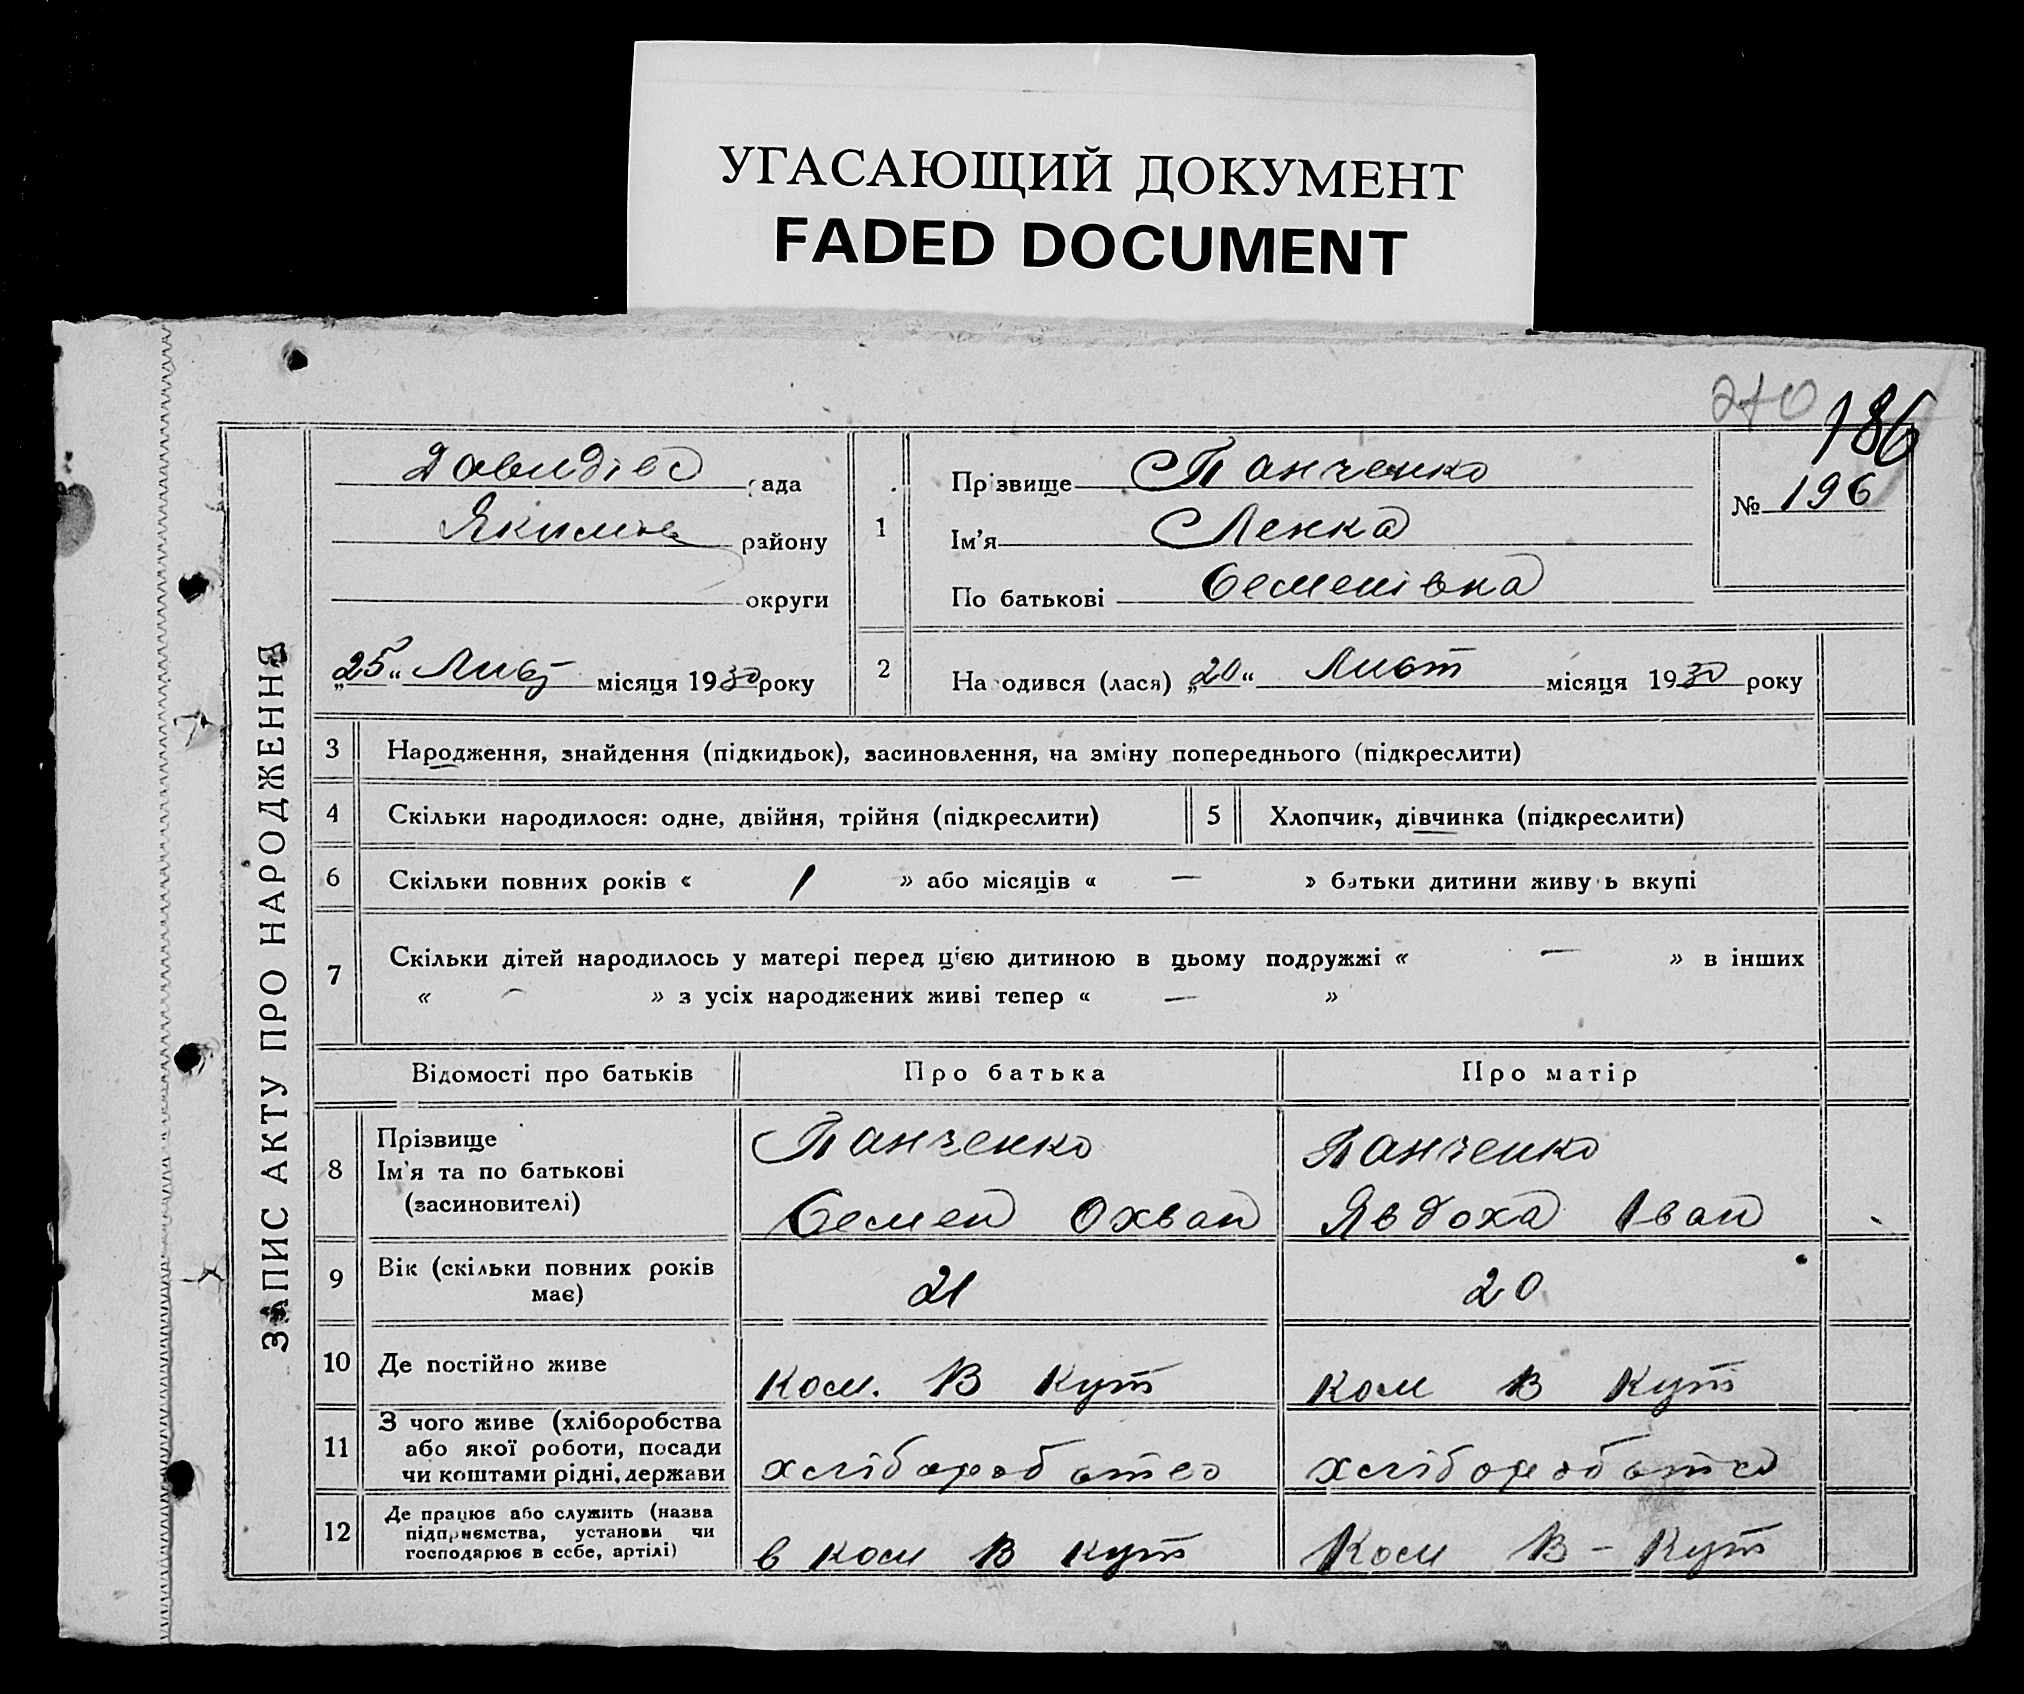 УГАСАЮЩИЙ ДОКУМЕНТ
FADED DOCUMENT
270
186
ЗАПИС АКТУ ПРО НАРОДЖЕННЯ
Давидівс рада
Якимів району
округи
„25“ Лют місяця 1930 року
1
Прізвище Панченко
Ім'я Ленка
По батькові Семенівна
№ 196
2 Народився (лася) „20“ Лют місяця 1930 року
3 Народження, знайдення (підкидьок), засиновлення, на зміну попереднього (підкреслити)
4 Скільки народилося: одне, двійня, трійня (підкреслити) 5 Хлопчик, дівчинка (підкреслити)
6 Скільки повних років « 1 » або місяців « — » батьки дитини живуть вкупі
7 Скільки дітей народилось у матері перед цією дитиною в цьому подружжі « — » в інших
« — » з усіх народжених живі тепер « — »
Відомості про батьків Про батька Про матір
8 Прізвище Панченко Панченко
Ім'я та по батькові
(засиновителі) Семен Охван Явдоха Іван
9 Вік (скільки повних років
має) 21 20
10 Де постійно живе Ком. В Кут Ком В Кут
11 З чого живе (хліборобства
або якої роботи, посади
чи коштами рідні, держави хліборобство хліборобство
12 Де працює або служить (назва
підприємства, установи чи
господарює в себе, артілі) в Ком В Кут Ком В - Кут